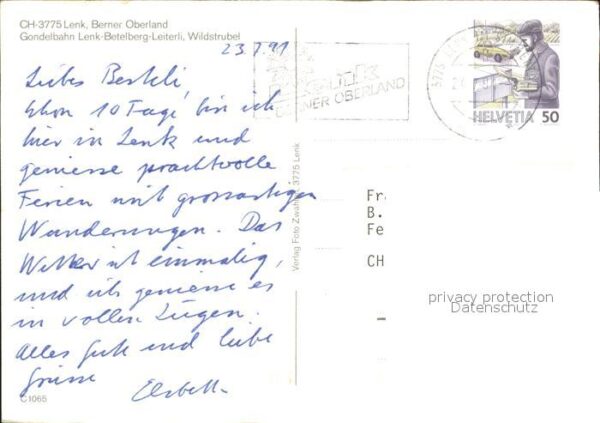 CH-3775 Lenk, Berner Oberland
Gondelbahn Lenk-Betelberg-Leiterli, Wildstrubel
23.7.91
Liebes Bertheli,
Schon 10 Tage bin ich
hier in Lenk und
geniesse prachtvolle
Ferien mit grossartigen
Wanderungen. Das
Wetter ist einmalig,
und ich geniesse es
in vollen Zügen.
Alles Gute und liebe
Grüsse
Elsbeth
C1065
Verlag Foto Zwahlen, 3775 Lenk
BERNER OBERLAND
3775
HELVETIA 50
Fr
B.
Fe
CH
privacy protection
Datenschutz